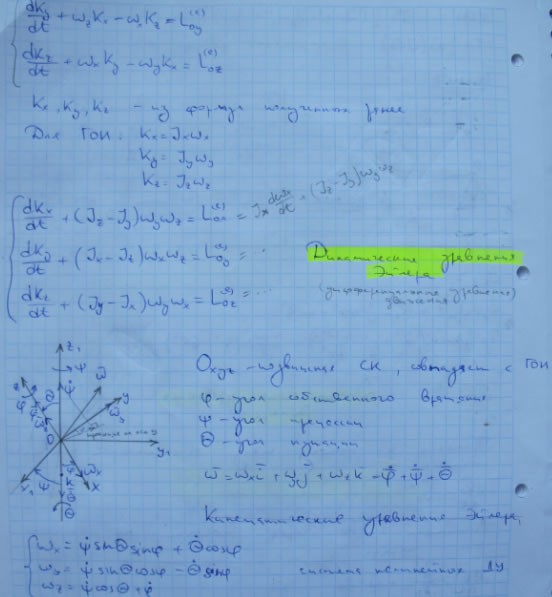 dKy/dt + ωzKx - ωxKz = Loy(e)
dKz/dt + ωxKy - ωyKx = Loz(e)
Kx, Ky, Kz - из формул полученных ранее
Для ГОИ: Kx = Jxωx
Ky = Jyωy
Kz = Jzωz
dKx/dt + (Jz - Jy)ωyωz = Lox(e) = Jx dωx/dt + (Jz - Jy)ωyωz
dKy/dt + (Jx - Jz)ωxωz = Loy(e) = ...
Динамические уравнения
Эйлера
dKz/dt + (Jy - Jx)ωyωx = Loz(e) = ...
(дифференциальные уравнения)
движения
z1
ψ
ω
y
O
y1
x
x1
Oxyz - подвижная СК, совпадает с ГОИ
φ - угол собственного вращения
ψ - угол прецессии
θ - угол нутации
ω̄ = ωxī + ωyj̄ + ωzk̄ = φ̇ + ψ̇ + θ̇
Кинематические уравнения Эйлера
ωx = ψ̇ sinθ sinφ + θ̇ cosφ
ωy = ψ̇ sinθ cosφ - θ̇ sinφ
система нелинейных ДУ
ωz = ψ̇ cosθ + φ̇